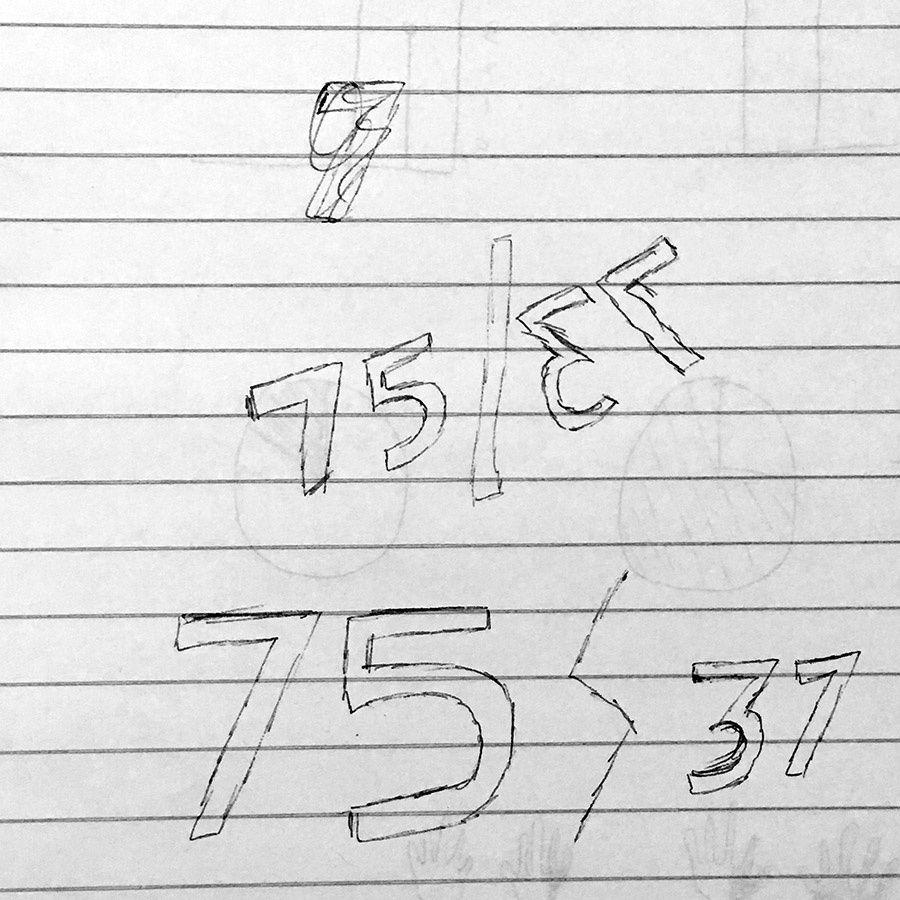 75 | 37
75 37